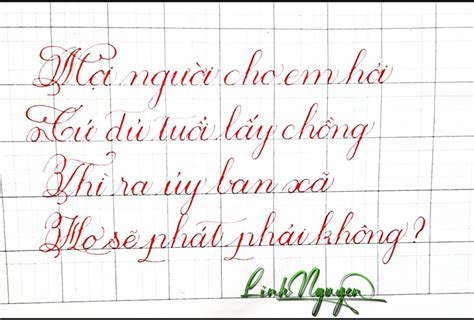 Mọi người cho em hỏi
Cứ đủ tuổi lấy chồng
Thì ra ủy ban xã
Họ sẽ phát phải không?
Linh Nguyen